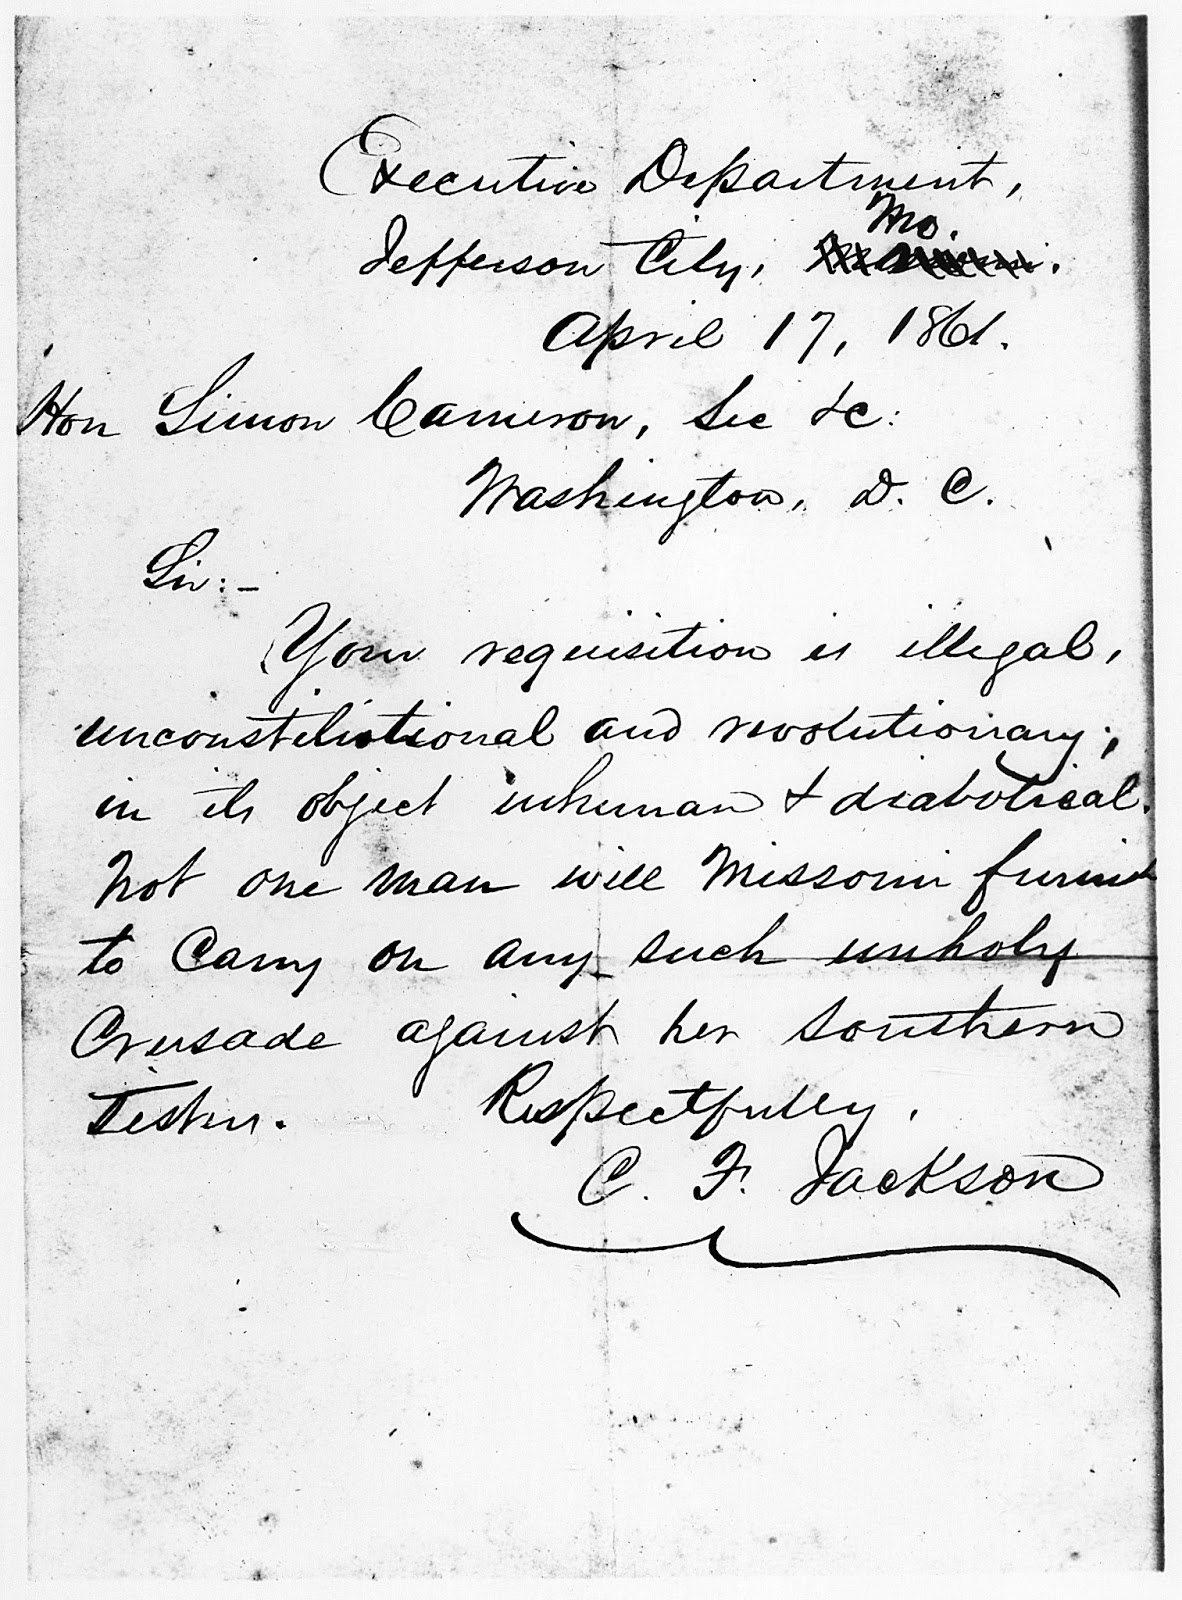 Executive Department,
Mo.
Jefferson City,
April 17, 1861.
Hon Simon Cameron, Sec &c:
Washington, D. C.
Sir:—
Your requisition is illegal,
unconstitutional and revolutionary;
in its object inhuman & diabolical.
Not one man will Missouri furnish
to Carry on any such unholy
Crusade against her Southern
Sisters. Respectfully,
C. F. Jackson